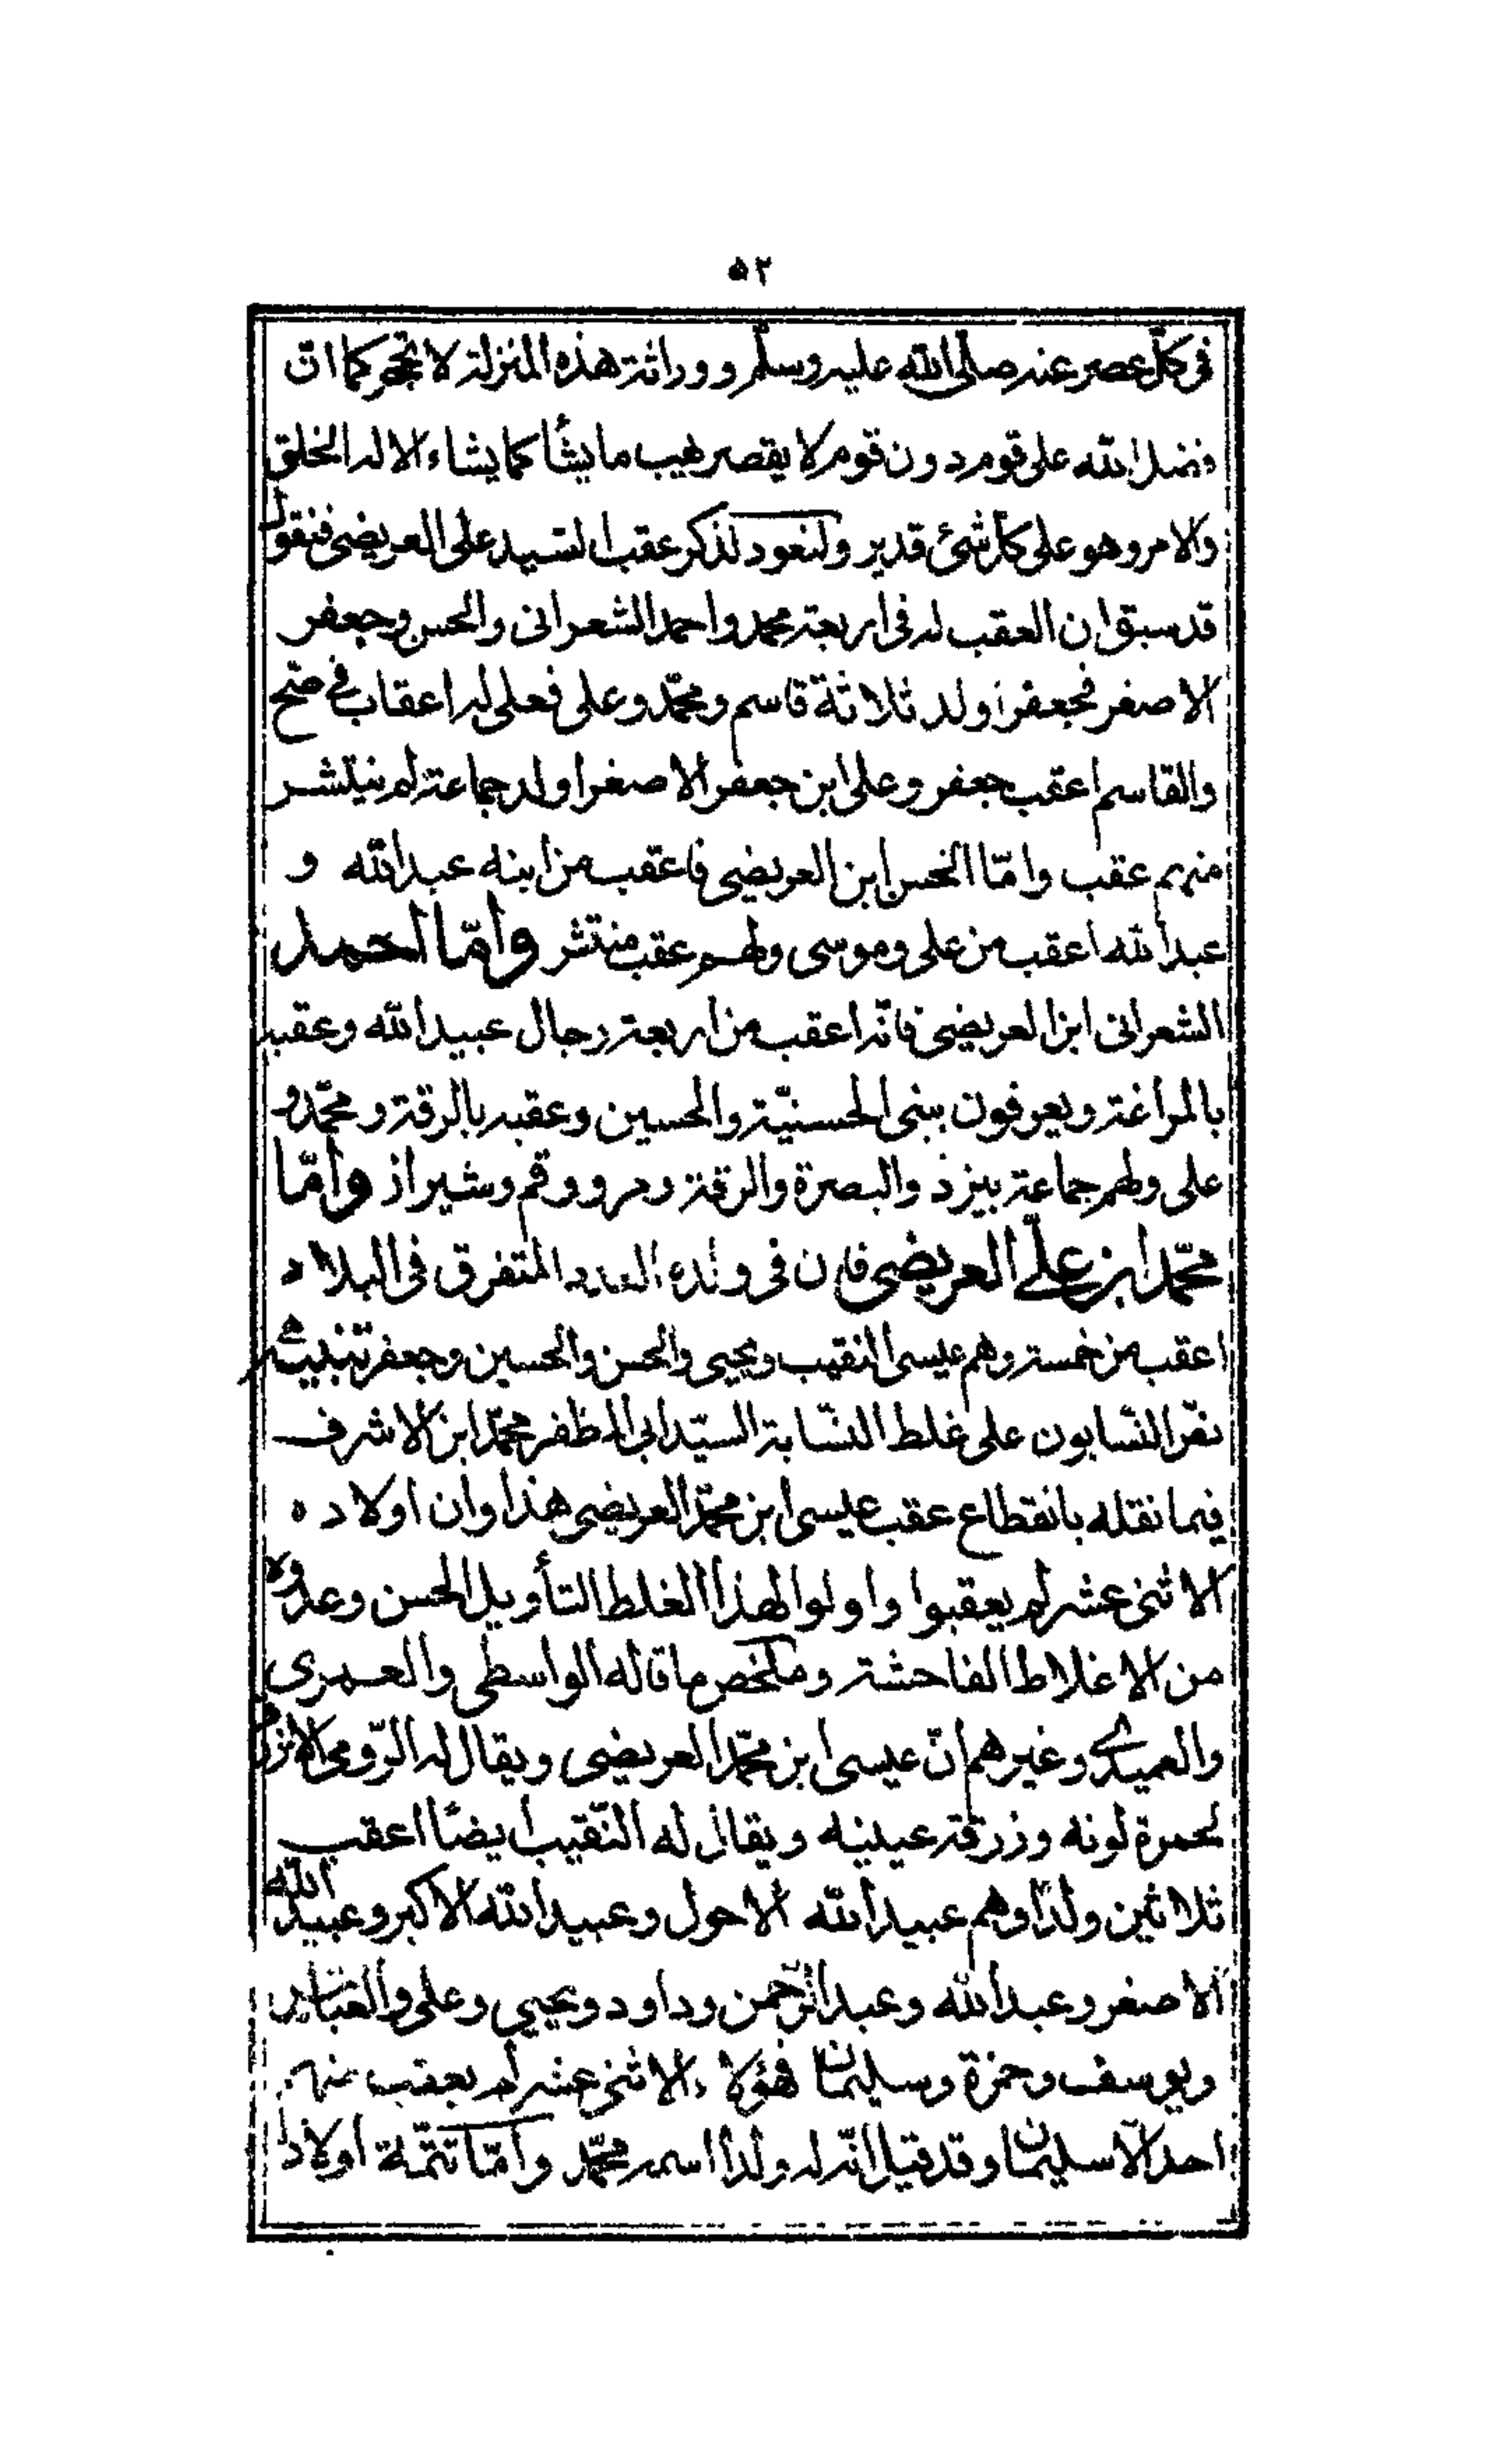 ٥٢
فى كلّ عصر عنه صلّى الله عليه وسلّم ووراثة هذه المنزلة لا تحجر كما انّ
فضل الله على قوم دون قوم لا يقصر يهب ما يشأ كما يشاء الا له الخلق
والامر وهو على كلّ شئ قدير ولنعود لذكر عقب السّيد على العريضى فنقول
قد سبق ان العقب له فى اربعة محمد واحمد الشعرانى والحسن وجعفر
الاصغر فجعفر اولد ثلاثة قاسم ومحمّد وعلى فعلى له اعقاب في صح
والقاسم اعقب جعفر وعلى ابن جعفر الاصغر اولد جماعة لم ينتشر
منهم عقب وامّا الحسن ابن العريضى فاعقب من ابنه عبدالله و
عبدالله اعقب من على وموسى ولهم عقب منتشر وامّا احمد
الشعرانى ابن العريضى فانّه اعقب من اربعة رجال عبيدالله وعقبه
بالمراغة ويعرفون ببنى الحسنيّة والحسين وعقبه بالرقة ومحمّد و
على ولهم جماعة بيزد والبصرة والرقة ومرو وقم وشيراز وامّا
محمّد ابن علىّ العريضى فان فى ولده العدد المتفرق فى البلاد
اعقب من خمسة وهم عيسى النقيب ويحيى والحسن والحسين وجعفر تنبيه
نصّ النسّابون على غلط النسّابة السيّد ابى المظفر محمّد ابن الاشرف
فيما نقله بانقطاع عقب عيسى ابن محمّد العريضى هذا وان اولاده
الاثنى عشر لم يعقبوا واولوا لهذا الغلط التأويل الحسن وعدوه
من الاغلاط الفاحشة وملخص ما قاله الواسطى والعمرى
والعميدي وغيرهم انّ عيسى ابن محمّد العريضى ويقال له الرّومى الازرق
لحمرة لونه وزرقة عينيه ويقال له النّقيب ايضًا اعقب
ثلاثين ولدًا وهم عبيدالله الاحول وعبيدالله الاكبر وعبيد الله
الاصغر وعبدالله وعبدالرّحمن وداود ويحيى وعلى والعبّاس
ويوسف وحمزة وسليمان فهؤلاء الاثنى عشر لم يعقب منهم
احد الّا سليمان وقد قيل انّه له ولدا اسمه محمّد وامّا تتمّة اولاد